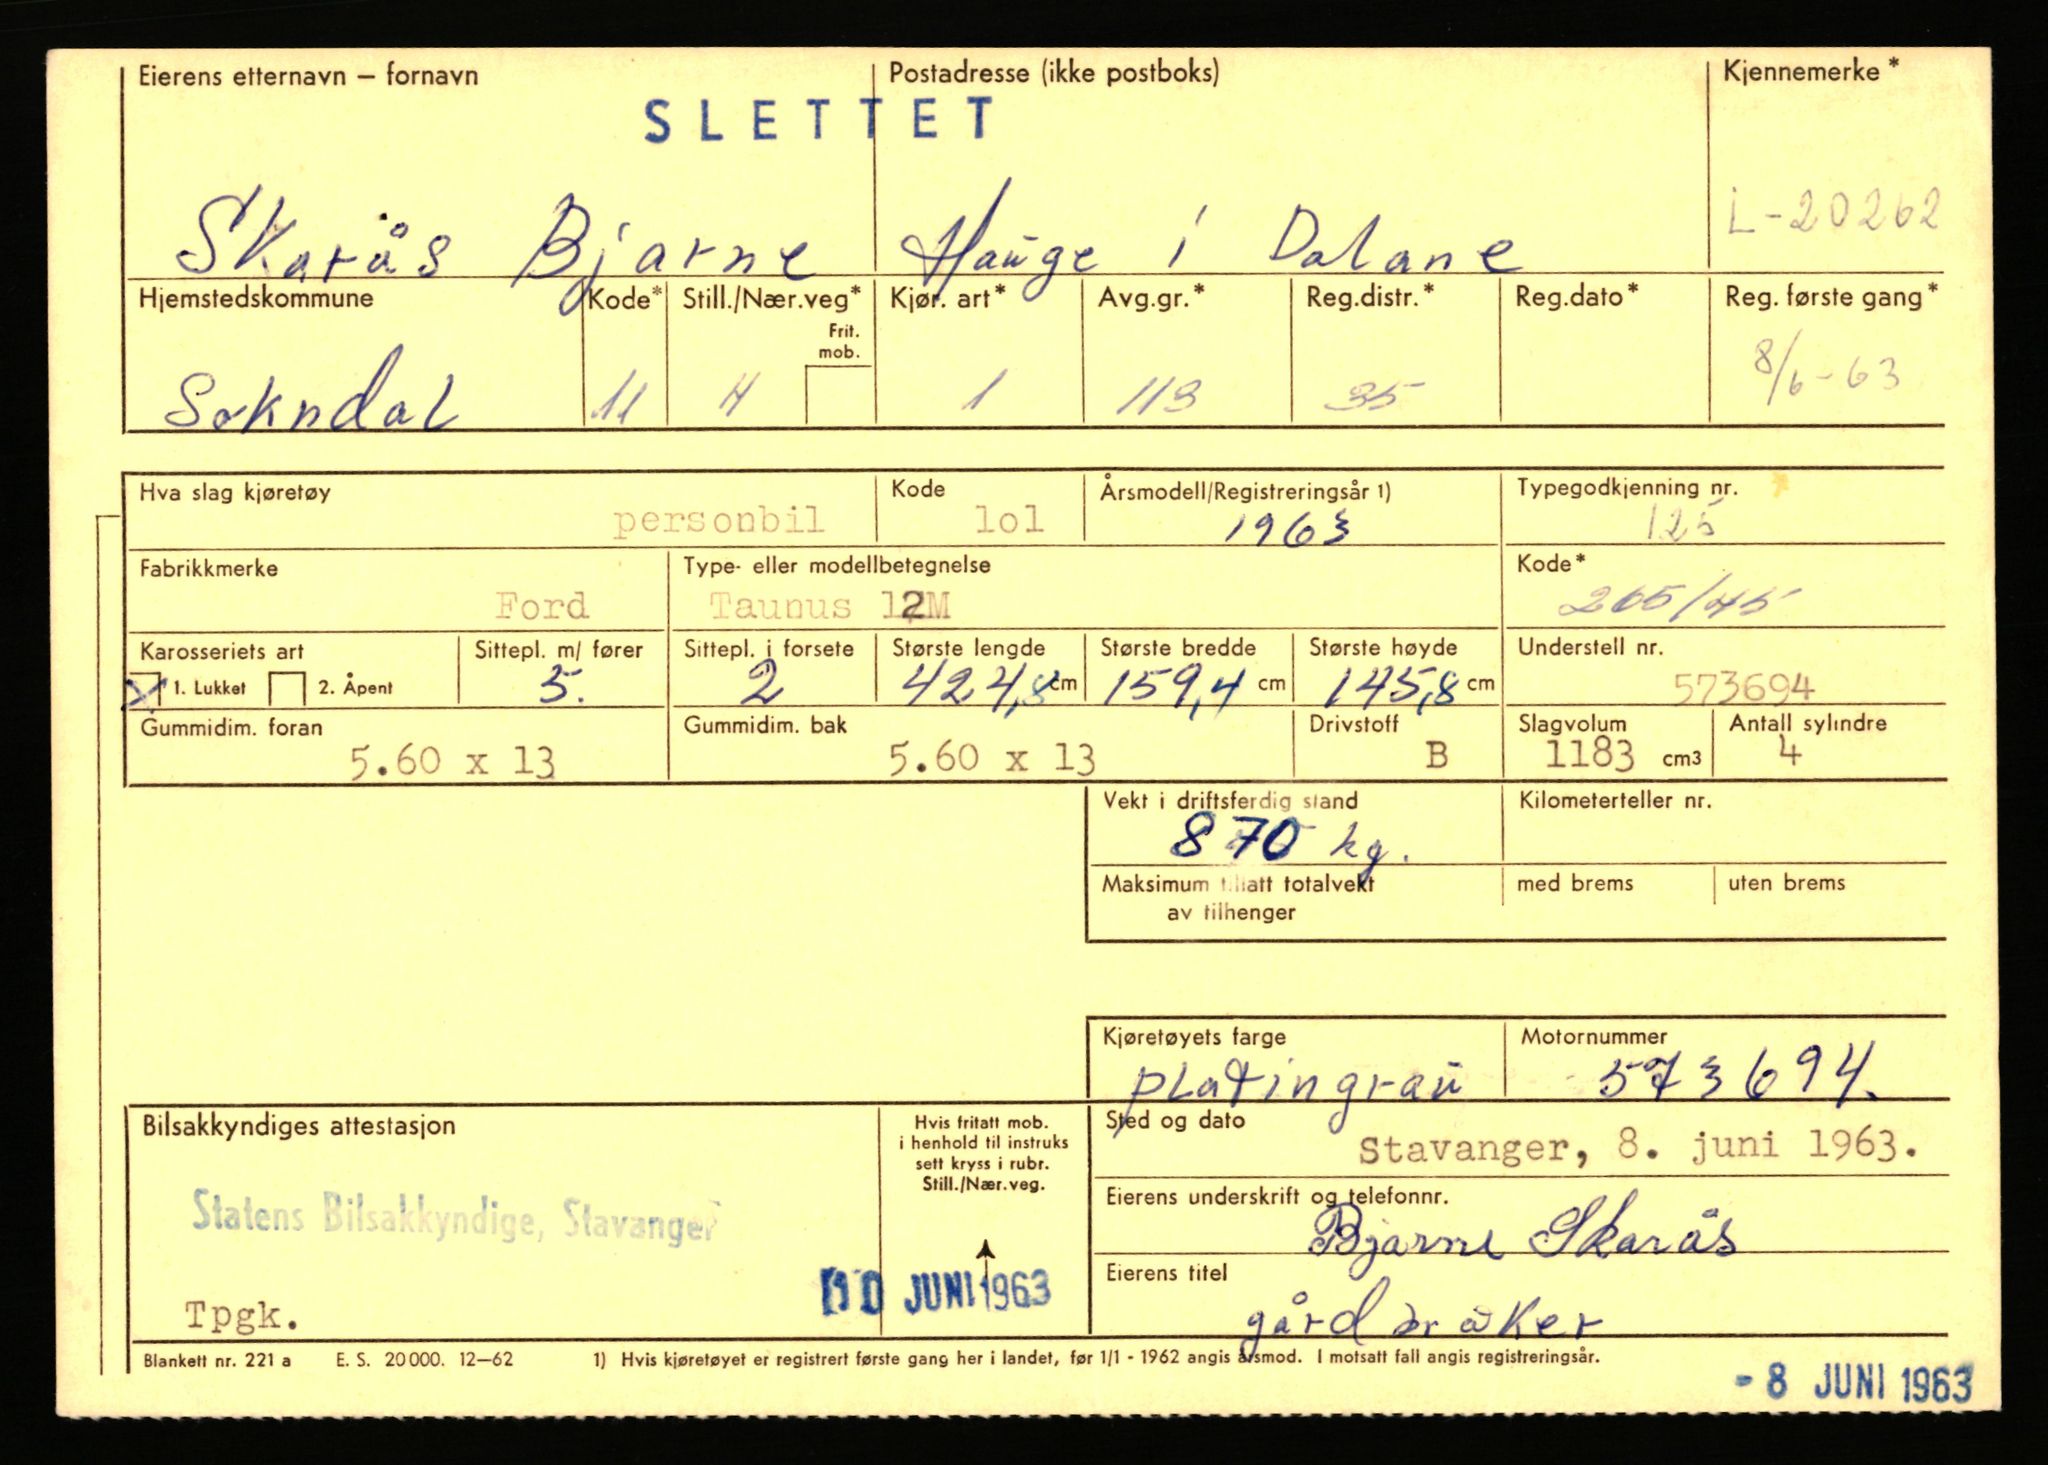 Eierens etternavn – fornavn Postadresse (ikke postboks) Kjennemerke *
SLETTET
Skarås Bjarne Hauge i Dalane L-20262
Hjemstedskommune Kode* Still./Nær.veg* Kjør. art* Avg.gr.* Reg.distr.* Reg.dato* Reg. første gang*
Frit.
mob.
Sokndal 11 H 1 113 35 8/6-63
Hva slag kjøretøy Kode Årsmodell/Registreringsår 1) Typegodkjenning nr.
personbil 101 1963 125
Fabrikkmerke Type- eller modellbetegnelse Kode*
Ford Taunus 12M 265/45
Karosseriets art Sittepl. m/ fører Sittepl. i forsete Største lengde Største bredde Største høyde Understell nr.
X 1. Lukket 2. Åpent 5. 2 424,8 cm 159,4 cm 145,8 cm 573694
Gummidim. foran Gummidim. bak Drivstoff Slagvolum Antall sylindre
5.60 x 13 5.60 x 13 B 1183 cm3 4
Vekt i driftsferdig stand Kilometerteller nr.
870 kg.
Maksimum tillatt totalvekt med brems uten brems
av tilhenger
Kjøretøyets farge Motornummer
platingrau 573694.
Bilsakkyndiges attestasjon Hvis fritatt mob.
i henhold til instruks
sett kryss i rubr.
Still./Nær.veg.
Sted og dato
Stavanger, 8. juni 1963.
Statens Bilsakkyndige, Stavanger
Eierens underskrift og telefonnr.
Bjarne Skarås
Eierens titel
10 JUNI 1963
Tpgk.
gårdbruker
Blankett nr. 221 a E. S. 20000. 12–62 1) Hvis kjøretøyet er registrert første gang her i landet, før 1/1 - 1962 angis årsmod. I motsatt fall angis registreringsår.
- 8 JUNI 1963